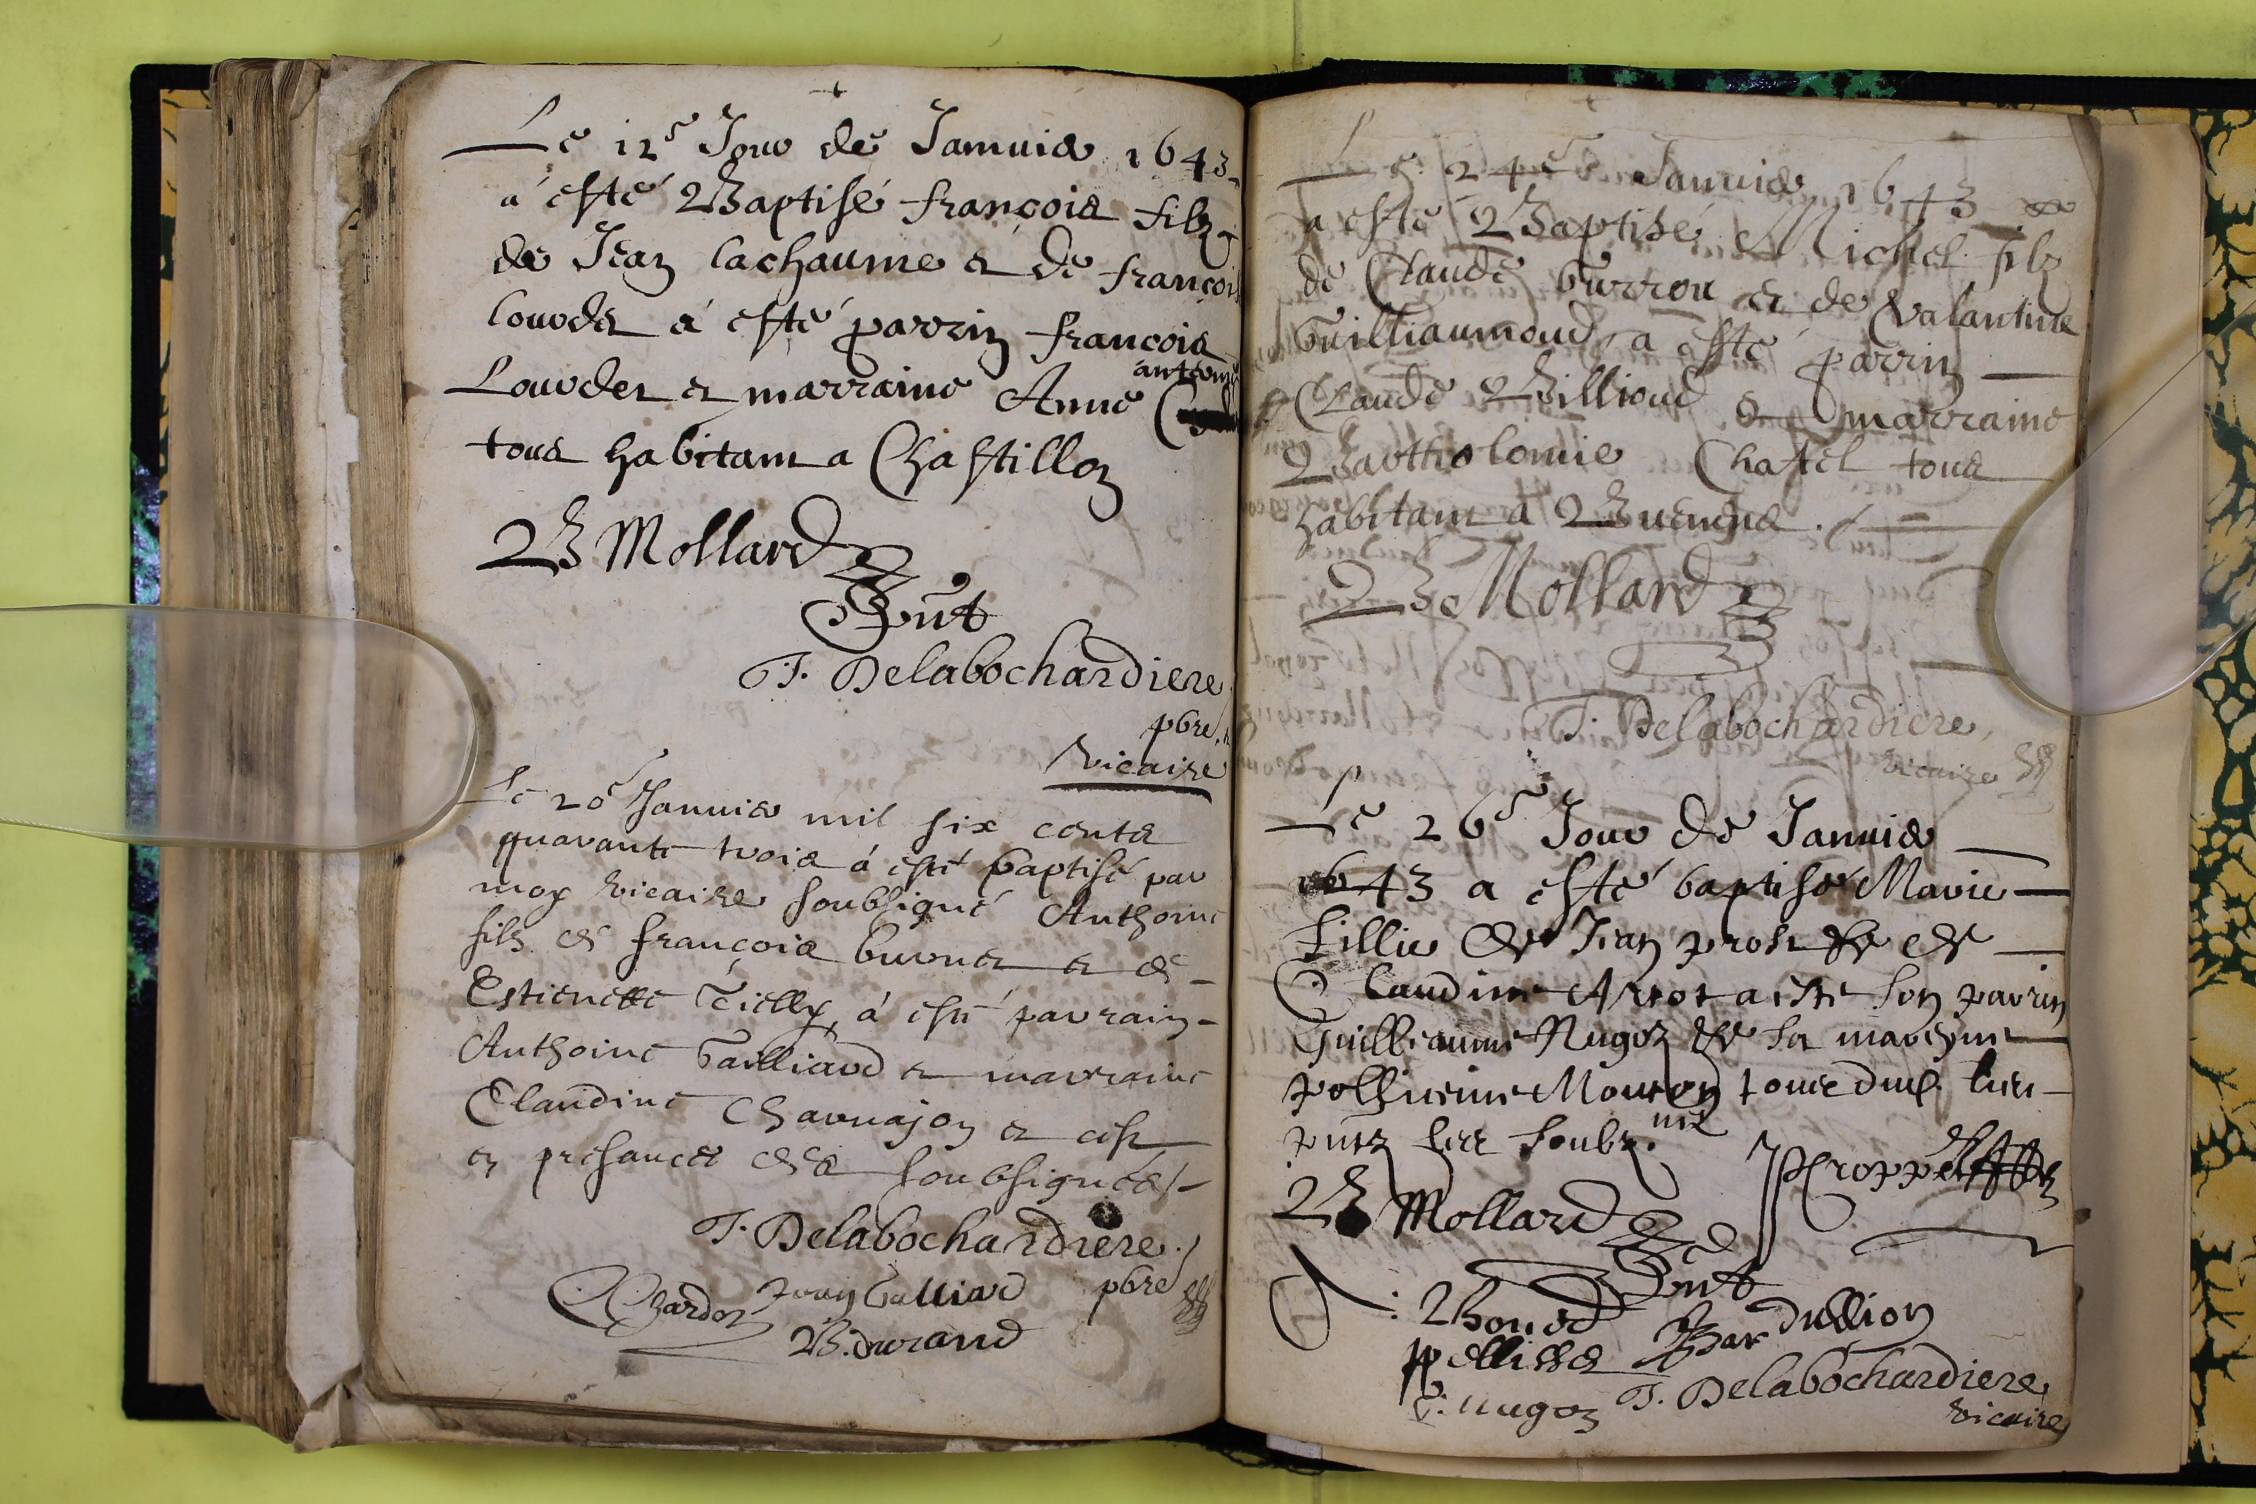 Le 12e Jour de Januier 1643
a esté Baptisé françois filz
de Jean Lachaume et de françois
Lourdet a esté parrin françois
Lourdet et marraine Anne
antoine
tous habitant a Chastillon
B Mollard
Put
T. Delabochardiere
pbre
vicaire
Le 20e Januier mil six cents
quarante trois a esté baptisé par
moy vicaire soubsigné Anthoine
filz de françois burnet et de
Estienette Tielly, a esté parrain
Anthoine Galliard et marraine
Claudine Charnajon et cest
en presances des soubsignés
T. Delabochardiere
pbre
Chardon Jean Galliard
B. durand
Le 24e Januier 1643
a esté Baptisé Michel filz
de Claude burrou et de Valantine
Guilliaumoud, a esté parrin
Claude Billioud et marraine
Bartholomie Chastel tous
habitant a
B Mollard
T. Delabochardiere,
vicaire
Le 26e Jour de Januier
1643 a esté baptisé Marie
fillie de Jean prost et de
Claudine Arrot a este son parrin
Guilleaume Nugoz et sa mareyne
Mouton tous dud. lieu
pntz les soubz.nez
B Mollard
Put
: Boned Bardullion
pellisse
C. Nugoz T. Delabochardiere
vicaire